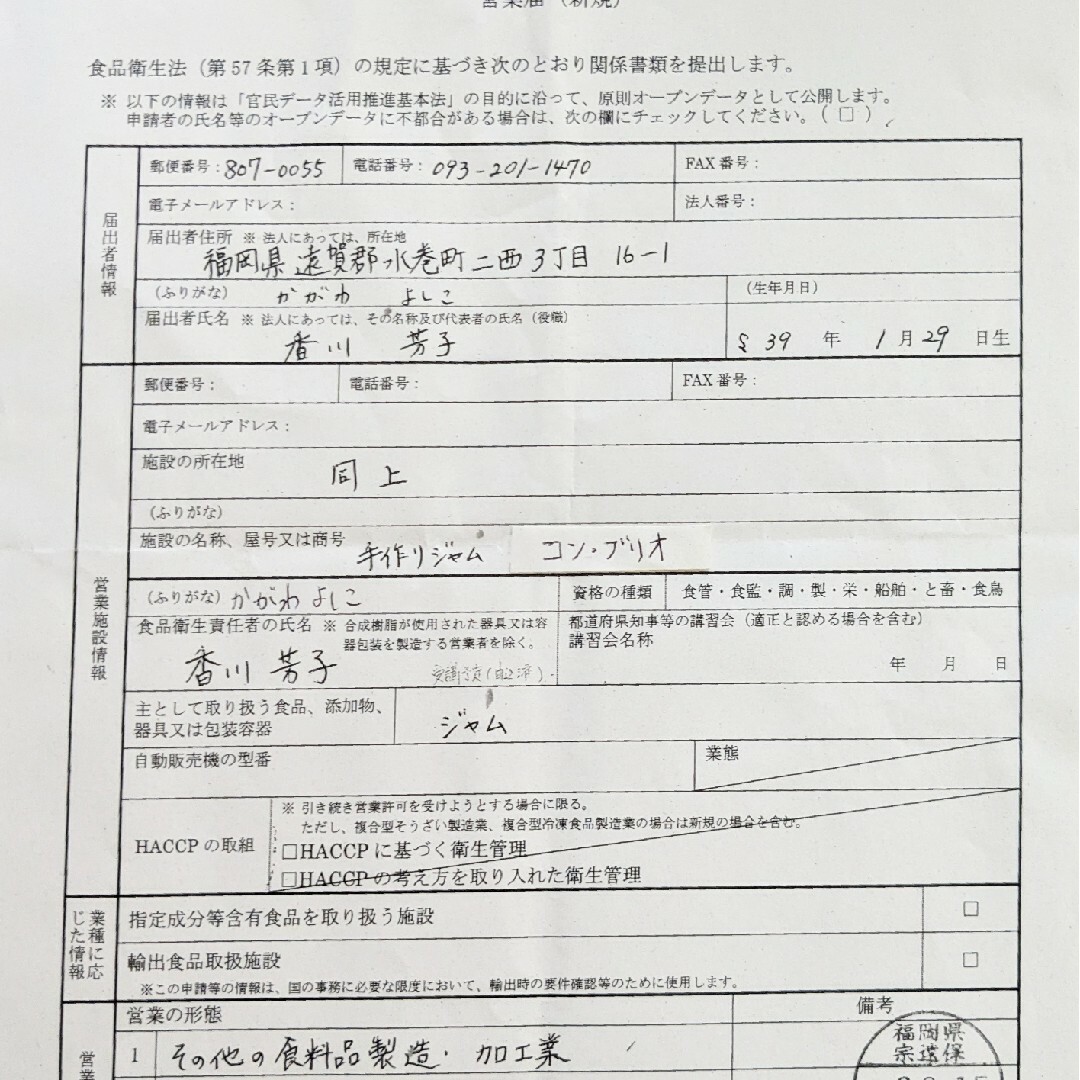 営業届（新規）
食品衛生法（第57条第1項）の規定に基づき次のとおり関係書類を提出します。
※ 以下の情報は「官民データ活用推進基本法」の目的に沿って、原則オープンデータとして公開します。
申請者の氏名等のオープンデータに不都合がある場合は、次の欄にチェックしてください。（□）
届出者情報
郵便番号：807-0055 電話番号：093-201-1470 FAX番号：
電子メールアドレス： 法人番号：
届出者住所 ※ 法人にあっては、所在地
福岡県遠賀郡水巻町二西3丁目 16-1
（ふりがな） かがわ よしこ （生年月日）
届出者氏名 ※ 法人にあっては、その名称及び代表者の氏名（役職）
香川 芳子 S 39 年 1月29 日生
営業施設情報
郵便番号： 電話番号： FAX番号：
電子メールアドレス：
施設の所在地
同上
（ふりがな）
施設の名称、屋号又は商号
手作りジャム コン・ブリオ
（ふりがな）かがわ よしこ 資格の種類 食管・食監・調・製・栄・船舶・と畜・食鳥
食品衛生責任者の氏名 ※ 合成樹脂が使用された器具又は容
器包装を製造する営業者を除く。
都道府県知事等の講習会（適正と認める場合を含む）
講習会名称
香川 芳子
年 月 日
主として取り扱う食品、添加物、
器具又は包装容器
ジャム
自動販売機の型番 業態
HACCPの取組
※ 引き続き営業許可を受けようとする場合に限る。
ただし、複合型そうざい製造業、複合型冷凍食品製造業の場合は新規の場合を含む。
□HACCPに基づく衛生管理
□HACCPの考え方を取り入れた衛生管理
業種に応じた情報
指定成分等含有食品を取り扱う施設 □
輸出食品取扱施設 □
※この申請等の情報は、国の事務に必要な限度において、輸出時の要件確認等のために使用します。
営業
営業の形態 備考
1 その他の食料品製造・加工業
福岡県
宗遠保